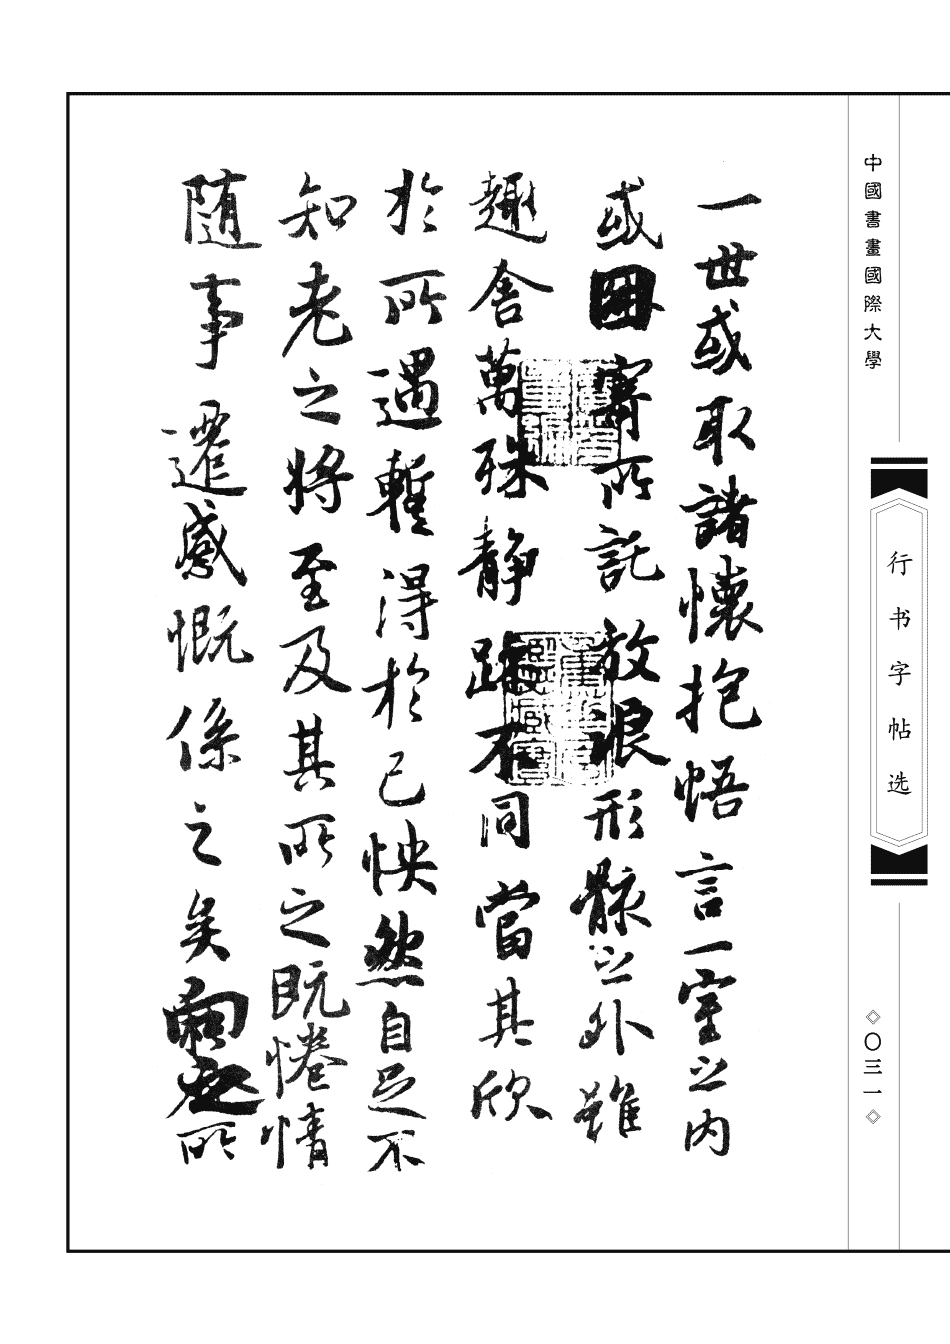 中國書畫國際大學
行书字帖选
◇〇三一◇
一世或取諸懷抱悟言一室之内
或因寄所託放浪形骸之外雖
趣舍萬殊静躁不同當其欣
於所遇蹔得於己怏然自足不
知老之將至及其所之既惓情
随事遷感慨係之矣向之所